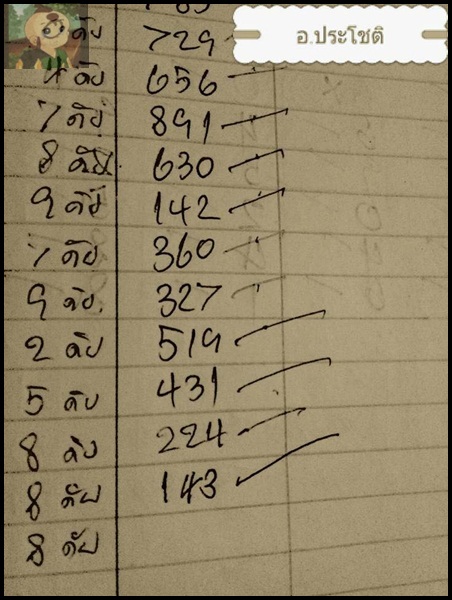 อ.ประโชติ
ดับ 729
4 ดับ 656
7 ดับ 891
8 ดับ 630
9 ดับ 142
7 ดับ 360
9 ดับ. 327
2 ดับ 519
5 ดับ 431
8 ดับ 224
8 ดับ 143
8 ดับ